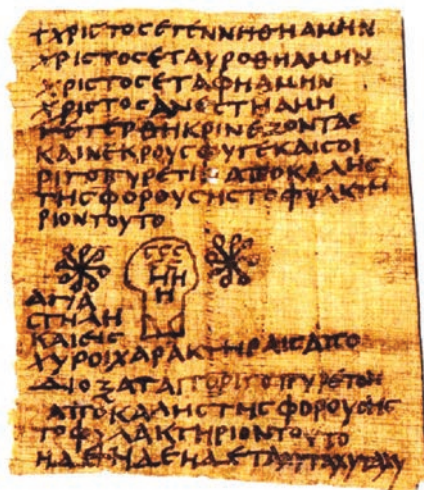 +ΧΡΙCΤΟCΕΓΕΝΝΗΘΗΑΜΗΝ
ΧΡΙCΤΟCΕΤΑΥΡΟΘΗΑΜΗΝ
ΧΡΙCΤΟCΕΤΑΦΗΑΜΗΝ
ΧΡΙCΤΟCΑΝΕCΤΗΑΜΗ
ΚΕΓΕΡΘΗΚΡΙΝΕΖΟΝΤΑC
ΚΑΙΝΕΚΡΟΥCΦΥΓΕΚΑΙCΟΙ
ΡΙΓΟΠΥΡΕΤΙΝ ΑΠΟΚΑΛΗC
ΤΗCΦΟΡΟΥCΗCΤΟΦΥΛΚΤΗ
ΡΙΟΝΤΟΥΤΟ
CCC
ΗΗ
Η
ΑΓΙΑ
CΤΗΛΗ
ΚΑΙΕΙC
ΧΥΡΟΙΧΑΡΑΚΤΗΡΑΙC ΑΠΟ
ΔΙΟΞΑΤΑΙ ΤΟΡΙΓΟΠΥΡΕΤΟΝ
ΑΠΟΚΑΛΗCΤΗCΦΟΡΟΥCΗC
ΤΟΦΥΛΑΚΤΗΡΙΟΝΤΟΥΤΟ
ΗΔΕΗΔΕΗΔΕΤΑΧΥΤΑΧΥΤΑΧΥ